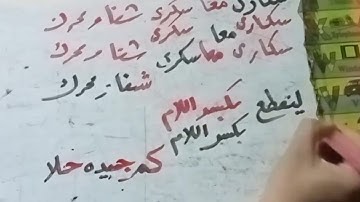 سكارى معا سكرى شفا ومحرك
سكارى معا سكرى شفا ومحرك
سكارى معا سكرى شفا ومحرك
شفا ومحرك
ليقطع بكسر اللام
بكسر اللام
كم جيده حلا